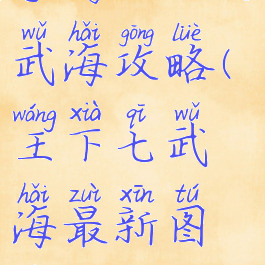 wǔ hǎi gōng lüè
武海攻略(
wáng xià qī wǔ
王下七武
hǎi zuì xīn tú
海最新图